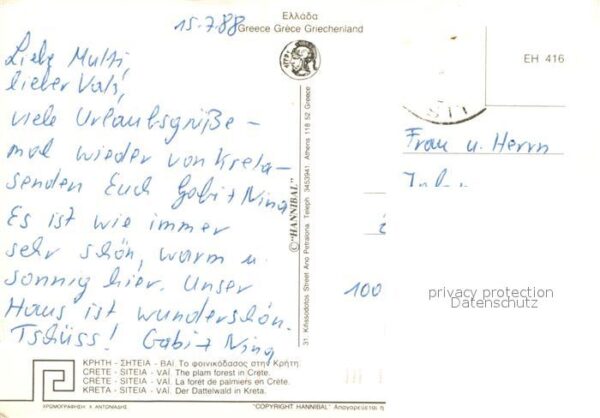 Ελλαδα
15.7.88 Greece Grèce Griechenland
Liebe Mutti,
lieber Vati,
viele Urlaubsgrüße –
mal wieder von Kreta –
senden Euch Gabi + Nina
Es ist wie immer
sehr schön, warm u.
sonnig hier. Unser
Haus ist wunderschön.
Tschüss! Gabi + Nina
ΚΡΗΤΗ - ΣΗΤΕΙΑ - ΒΑΪ Το φοινικόδασος στη Κρήτη
CRETE - SITEIA - VAÏ. The plam forest in Crete.
CRETE - SITEIA - VAÏ. La forêt de palmiers en Crète.
KRETA - SITEIA - VAÏ. Der Dattelwald in Kreta.
ΧΡΩΜΟΓΡΑΦΗΣΗ Χ ΑΝΤΩΝΙΑΔΗΣ
"COPYRIGHT HANNIBAL" Απαγορεύεται η
©"HANNIBAL"
31, Kifissodotos Street Ano Petralona, Teleph. 3453941, Athens 118 52 Greece
EH 416
Frau u. Herrn
100
privacy protection
Datenschutz